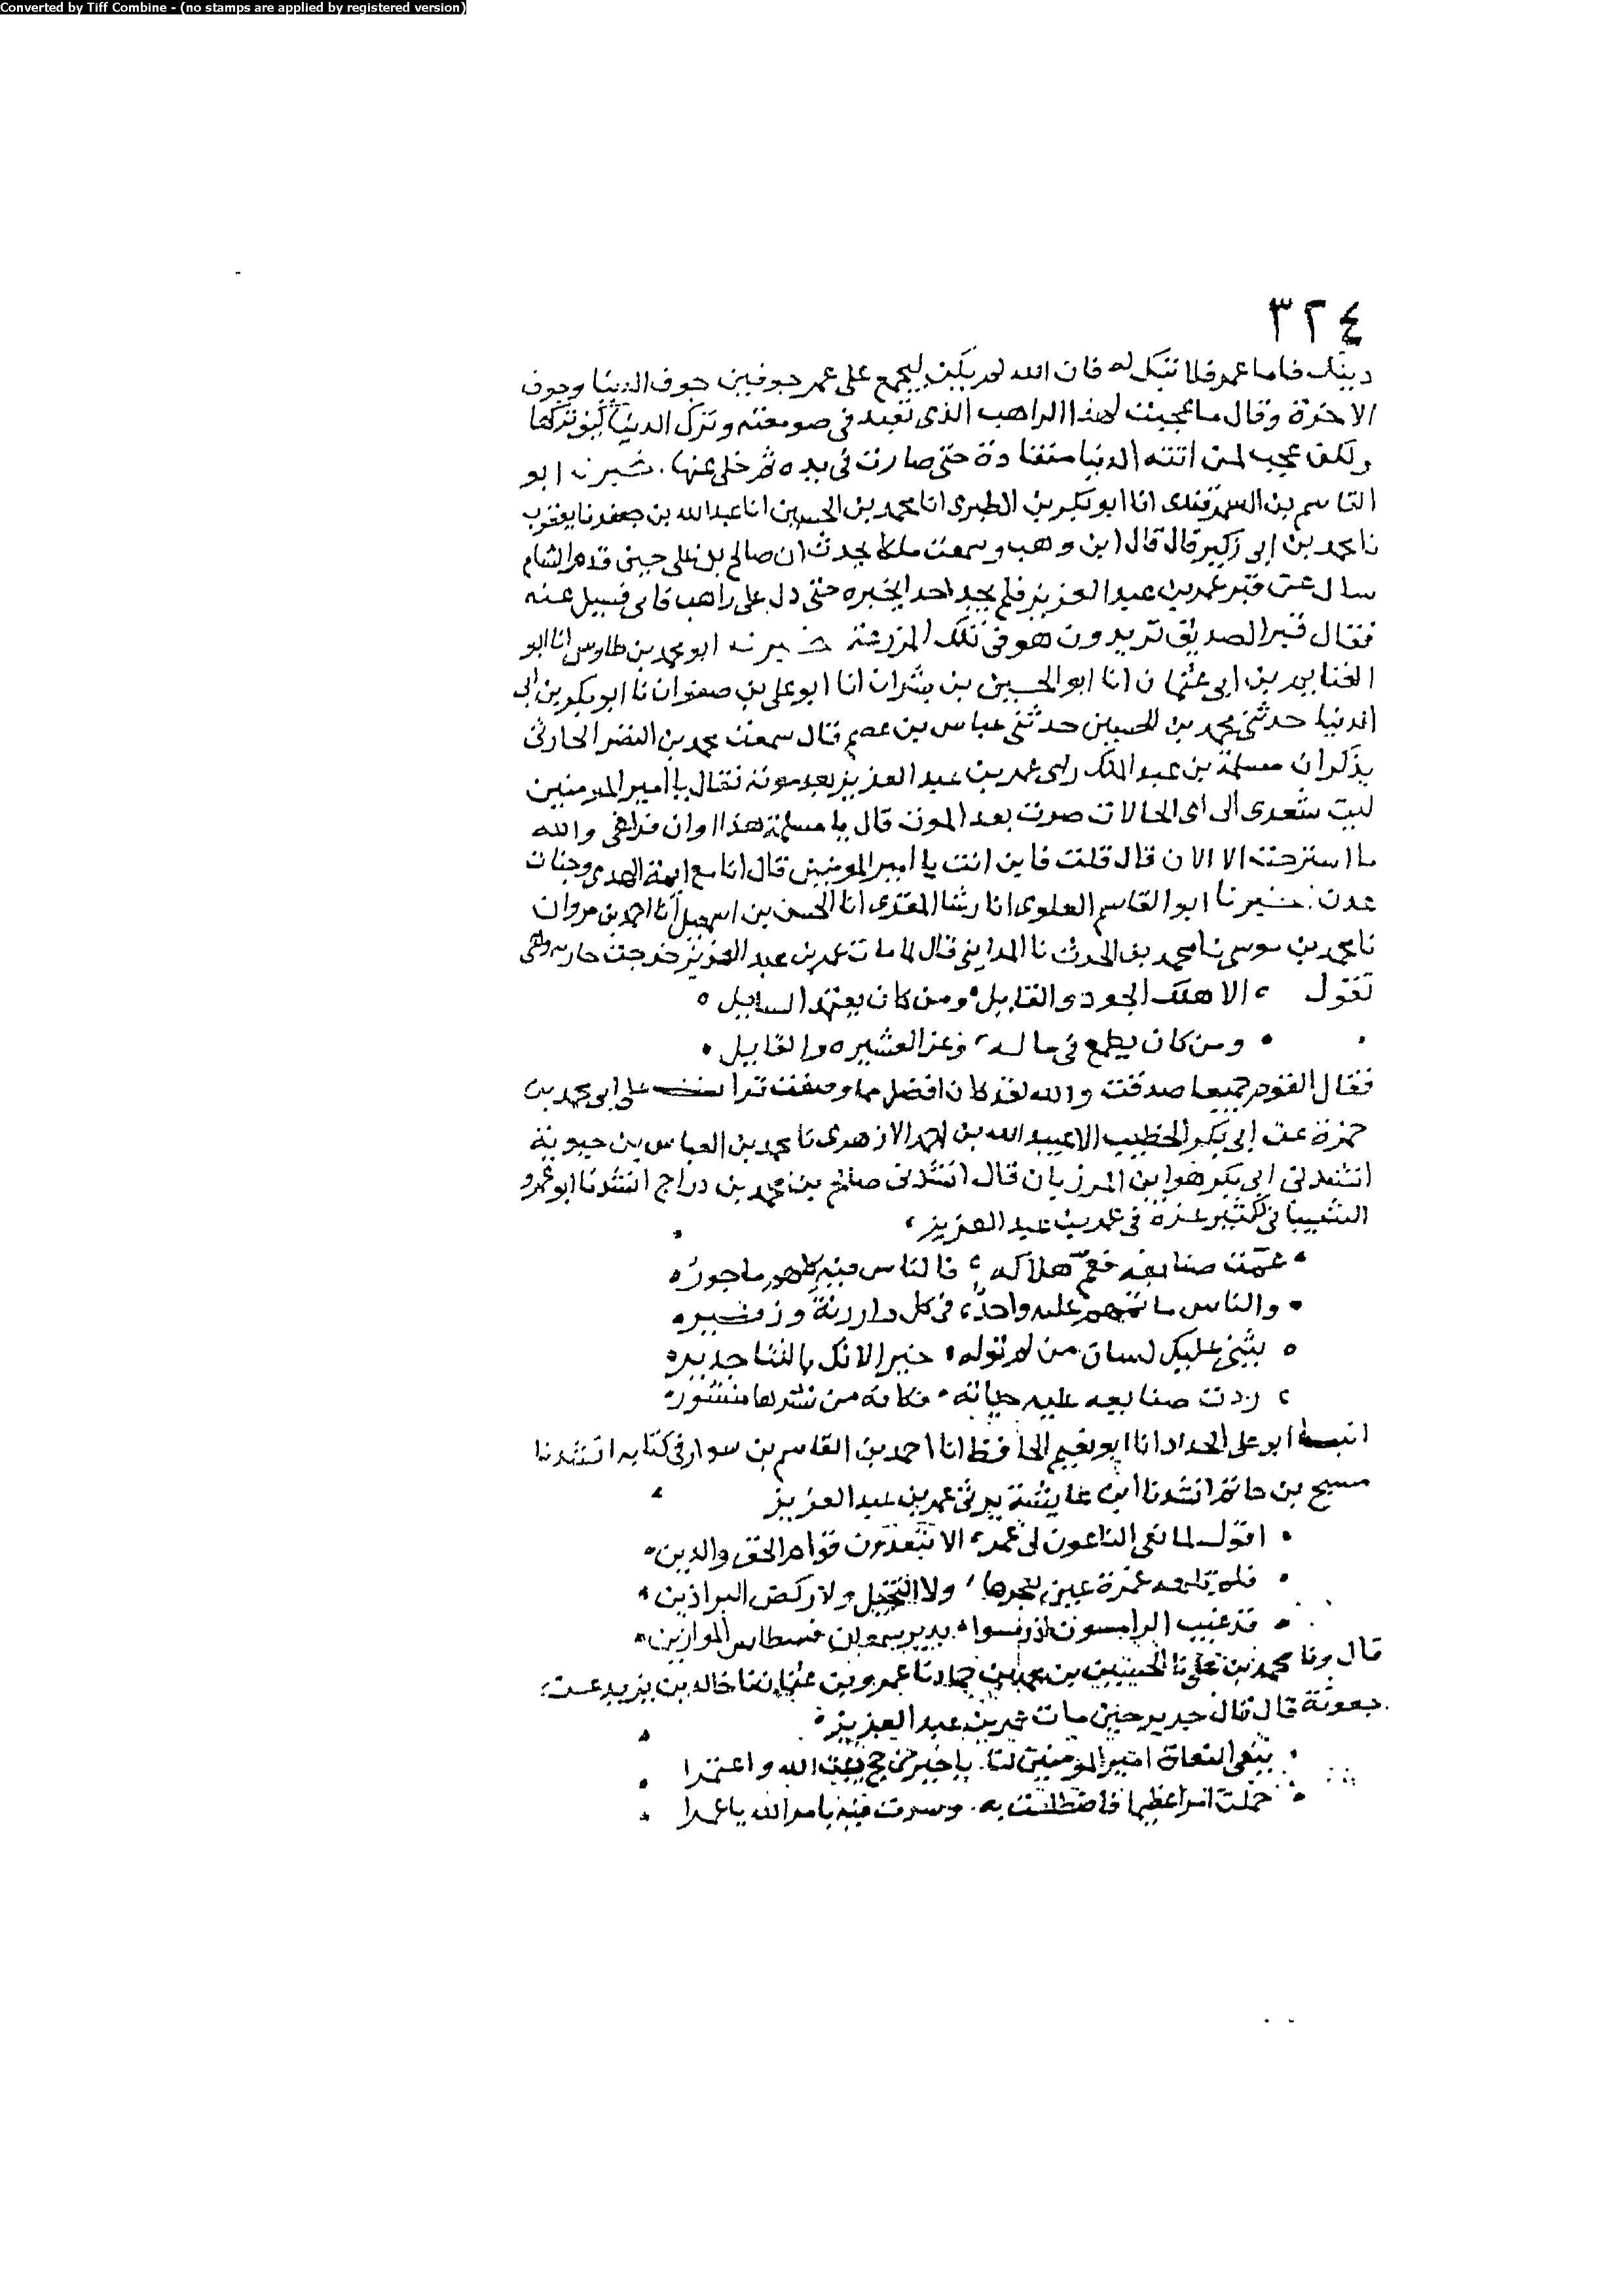 Converted by Tiff Combine - (no stamps are applied by registered version)
٣٢٤
دينك فاما عمر فلا تبكي له فان الله لم يكن ليجمع على عمر خوفين خوف الدنيا وخوف
الاخرة وقال ما عجبت لهذا الراهب الذي تعبد في صومعته وترك الدنيا
ولكن عجب لمن اتته الدنيا منقادة حتى صارت في يده ثم خلى عنها. خبرنا ابو
القاسم بن السمرقندي انا ابو بكر بن الطبري انا محمد بن الحسين انا عبدالله بن جعفر نا يعقوب
نا محمد بن ابي زكير قال قال ابن وهب وسمعت ملكا يحدث ان صالح بن علي حين قدم الشام
سال عن قبر عمر بن عبد العزيز فلم يجد احدا يخبره حتى دل على راهب فاتى فسيل عنه
فقال قبر الصديق تريدون هو في تلك المزرعة خبرنا ابو محمد بن طاوس انا ابو
الغنايم بن ابي عثمان انا ابو الحسين بن بشران انا ابو علي بن صفوان نا ابو بكر بن ابي
الدنيا حدثني محمد بن الحسين حدثني عباس بن عصم قال سمعت محمد بن النضر الحارثي
يذكر ان مسلمة بن عبد الملك راى عمر بن عبد العزيز بعد موته فقال يا امير المومنين
ليت شعري الى اي الحالات صرت بعد الموت قال يا مسلمة هذا اوان فراغي والله
ما استرحت الا الان قال قلت فاين انت يا امير المومنين قال انا مع ايمة الهدى وجنات
عدن. خبرنا ابو القاسم العلوي انا رشا المقري انا الحسن بن اسمعيل انا احمد بن مروان
نا محمد بن موسى نا محمد بن الحرث نا المدايني قال لما مات عمر بن عبد العزيز خرجت جاريه وهي
تقول ، الا هلك الجود والنايل، ومن كان يعتمد السايل ه
• ومن كان يطمع في ماله، غنى العشيره والقايل •
فقال القوم جميعا صدقت والله لقد كان افضل مما وصفت قرات على ابي محمد بن
حمزة عن ابي بكر الخطيب انا عبيد الله بن احمد الازهري نا محمد بن العباس بن حيوية
انشدني ابي بكر هو ابن المرزبان قال انشدني صالح بن محمد بن دراج انشدنا ابو عمرو
الشيباني لكثير عزة في عمر بن عبد العزيز،
• عمّت صنايعه فعمّ هلاكه، فالناس فيه كلهم ماجور ه
• والناس ماتمهم عليه واحد، في كل دار رنة وزفير ه
ه يثني عليك لسان من لم توله، خيرا لانك بالثنا جدير ه
، ردت صنايعه عليه حياته • فكانه من نشرها منشور
انبا ابو علي الحداد انا ابو نعيم الحافظ انا احمد بن القاسم بن سوار في كتابه انشدنا
مسيح بن حاتم انشدنا ابن عايشة يرثي عمر بن عبد العزيز
• اقول لما نعى الناعون لي عمر، الا تبعدن قوام الحق والدين •
• فلم تلهه عمره عين يفجرها، ولا النخيل ولا ركض البراذين •
• قد غيب الرامسون اذ رمسوا، بدير سمعان قسطاس الموازين •
قال ونا محمد بن علي نا الحسين بن محمد بن حماد نا عمرو بن عثمان نا خالد بن يزيد عن
جعونة قال قال جرير حين مات عمر بن عبد العزيز
• ينعى النعاة امير المومنين لنا. يا خير من حج بيت الله واعتمرا
• حملت امرا عظيما فاضطلعت به. وسرت فيه بامر الله يا عمرا